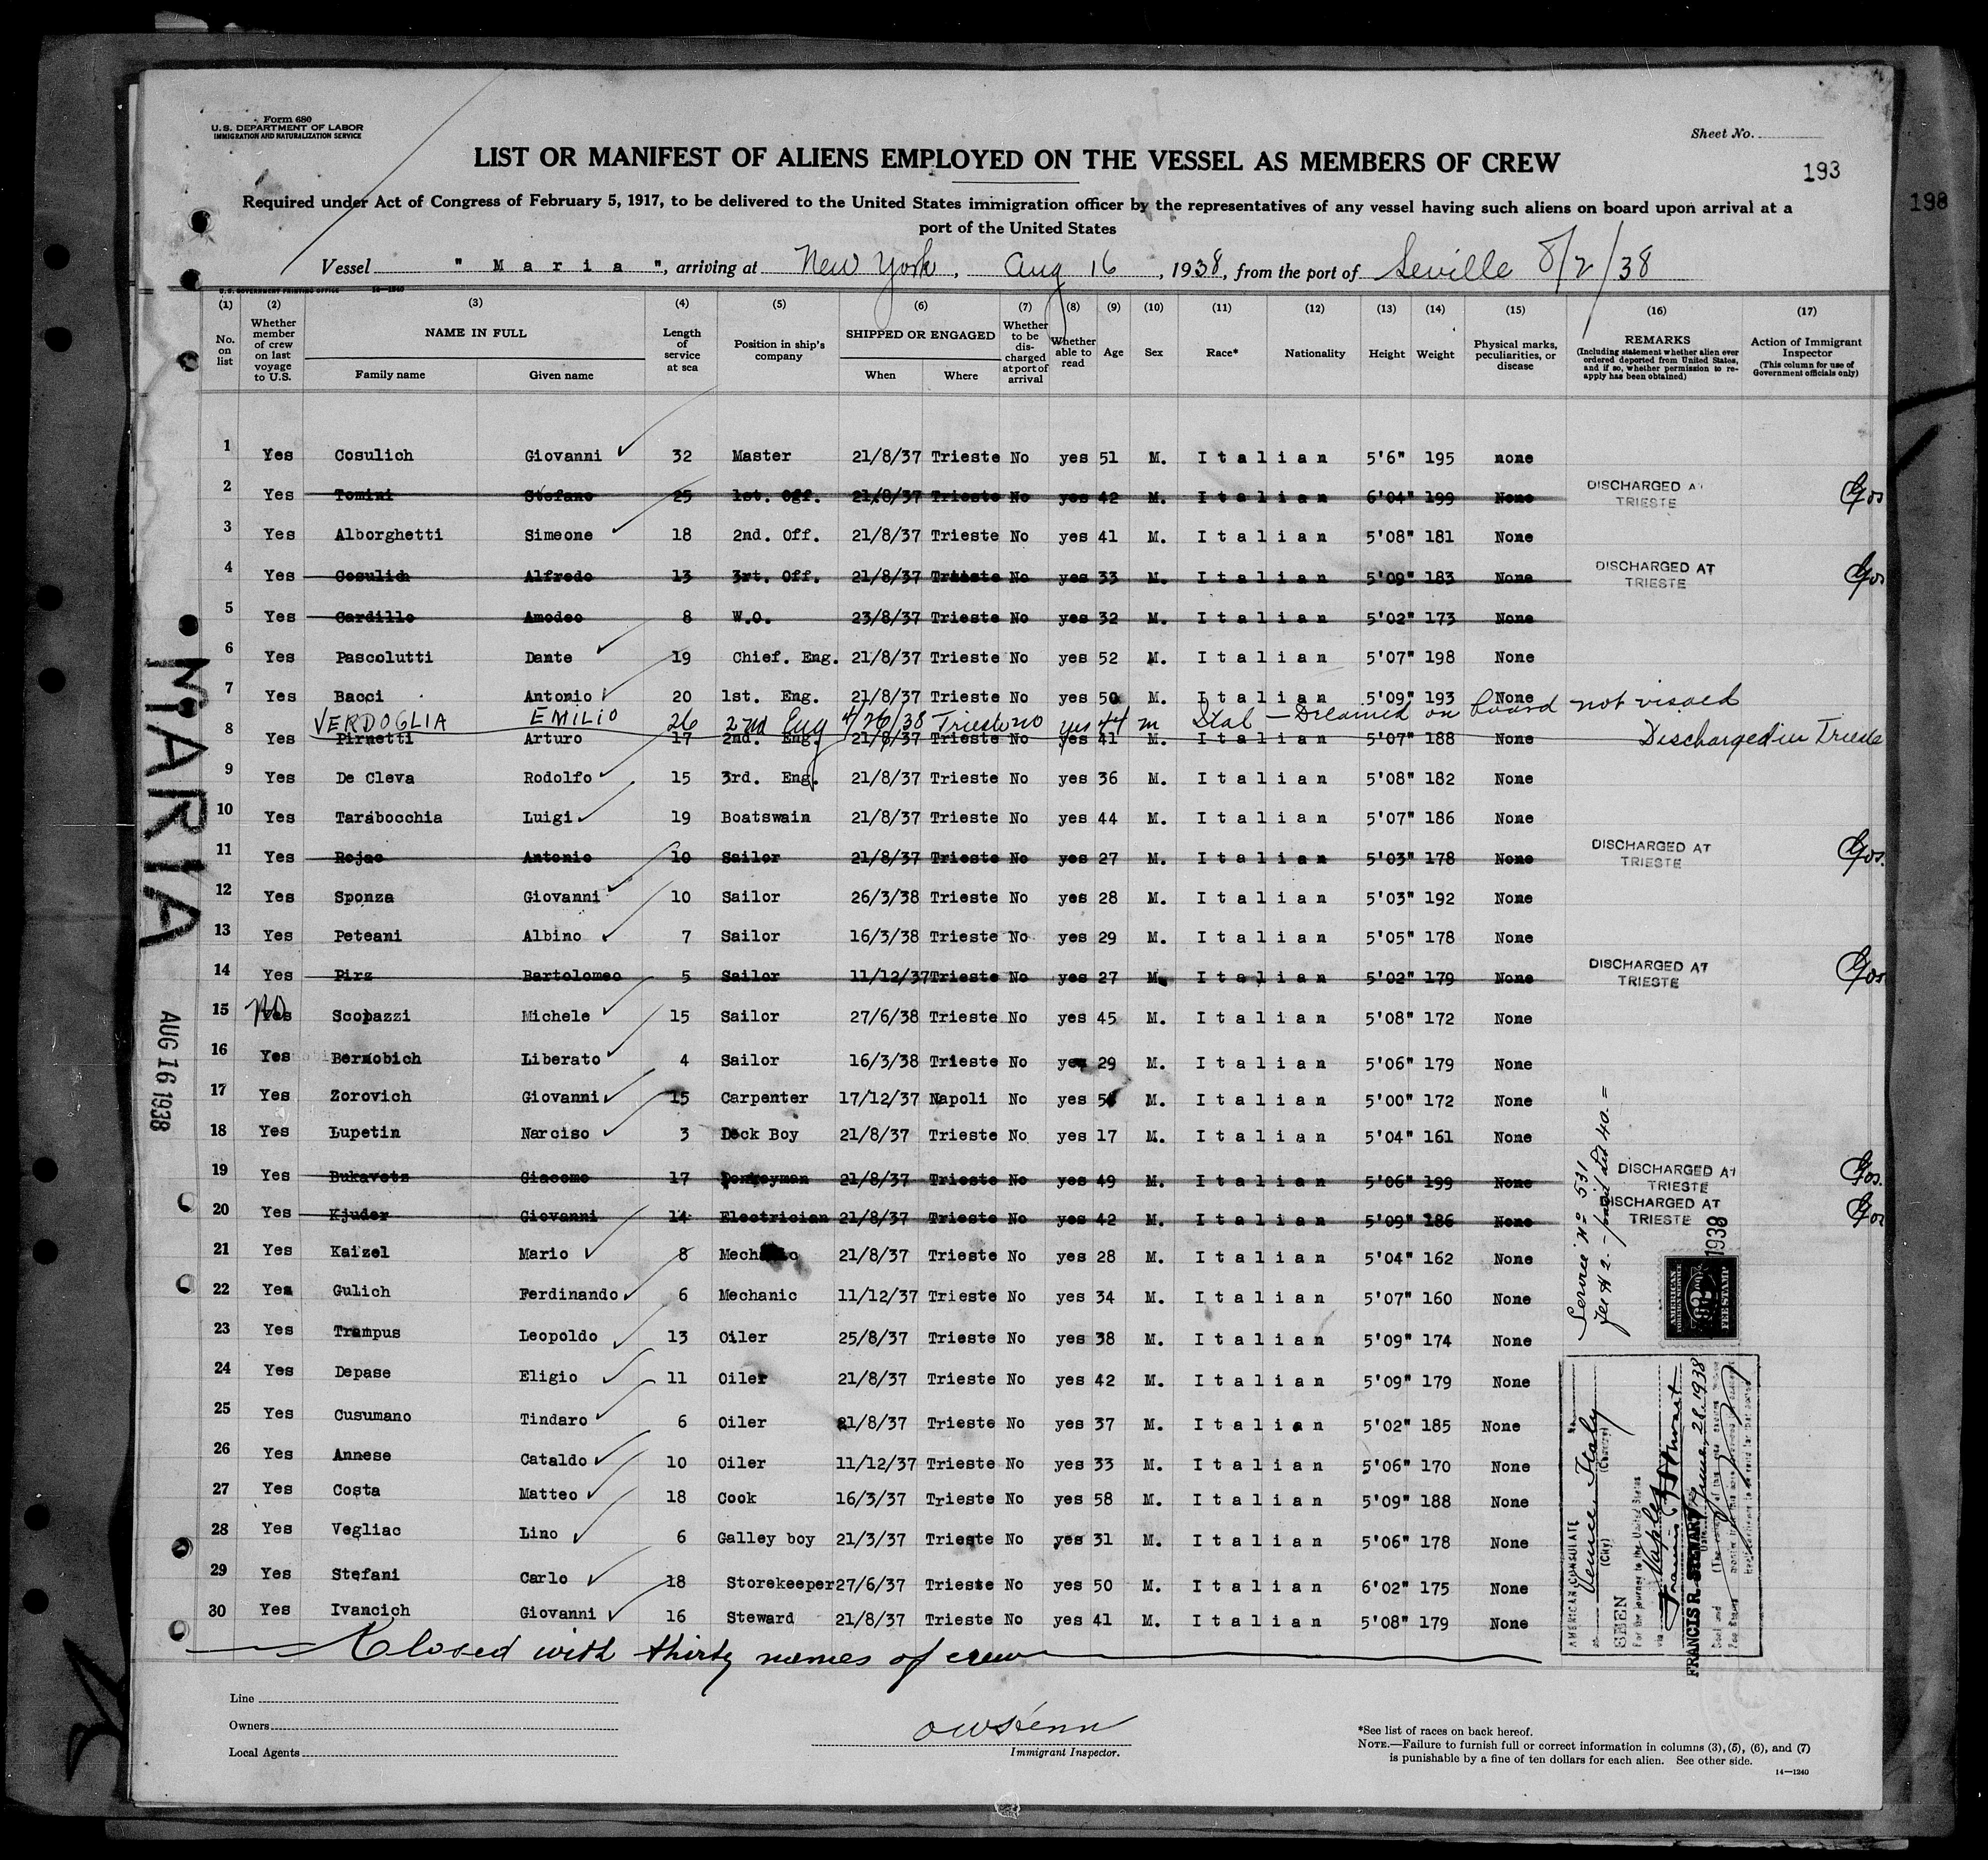 Form 680
U. S. DEPARTMENT OF LABOR
IMMIGRATION AND NATURALIZATION SERVICE
Sheet No.
LIST OR MANIFEST OF ALIENS EMPLOYED ON THE VESSEL AS MEMBERS OF CREW
193
198
Required under Act of Congress of February 5, 1917, to be delivered to the United States immigration officer by the representatives of any vessel having such aliens on board upon arrival at a
port of the United States
Vessel " M a r i a ", arriving at New York, Aug 16, 1938, from the port of Seville 8/2/38
U. S. GOVERNMENT PRINTING OFFICE 14—1240
(1) (2) (3) (4) (5) (6) (7) (8) (9) (10) (11) (12) (13) (14) (15) (16) (17)
No. on list
Whether member of crew on last voyage to U.S.
NAME IN FULL
Family name Given name
Length of service at sea
Position in ship's company
SHIPPED OR ENGAGED
When Where
Whether to be discharged at port of arrival
Whether able to read
Age
Sex
Race*
Nationality
Height
Weight
Physical marks, peculiarities, or disease
REMARKS
(Including statement whether alien ever ordered deported from United States, and if so, whether permission to reapply has been obtained)
Action of Immigrant Inspector
(This column for use of Government officials only)
1 Yes Cosulich Giovanni 32 Master 21/8/37 Trieste No yes 51 M. I t a l i a n 5'6" 195 none
2 Yes Tomini Stefano 25 1st. Off. 21/8/37 Trieste No yes 42 M. I t a l i a n 6'04" 199 None DISCHARGED AT TRIESTE
3 Yes Alborghetti Simeone 18 2nd. Off. 21/8/37 Trieste No yes 41 M. I t a l i a n 5'08" 181 None
4 Yes Cosulich Alfredo 13 3rt. Off. 21/8/37 Trieste No yes 33 M. I t a l i a n 5'09" 183 None DISCHARGED AT TRIESTE
5 Yes Cardillo Amodeo 8 W.O. 23/8/37 Trieste No yes 32 M. I t a l i a n 5'02" 173 None
6 Yes Pascolutti Dante 19 Chief. Eng. 21/8/37 Trieste No yes 52 M. I t a l i a n 5'07" 198 None
7 Yes Bacci Antonio 20 1st. Eng. 21/8/37 Trieste No yes 50 M. I t a l i a n 5'09" 193 None
VERDOGLIA EMILIO 26 2nd Eng 4/26/38 Trieste no yes 44 m Ital — on board not visaed
8 Yes Pirnetti Arturo 17 2nd. Eng. 21/8/37 Trieste No yes 41 M. I t a l i a n 5'07" 188 None Discharged in Trieste
9 Yes De Cleva Rodolfo 15 3rd. Eng. 21/8/37 Trieste No yes 36 M. I t a l i a n 5'08" 182 None
10 Yes Tarabocchia Luigi 19 Boatswain 21/8/37 Trieste No yes 44 M. I t a l i a n 5'07" 186 None
11 Yes Rojac Antonio 10 Sailor 21/8/37 Trieste No yes 27 M. I t a l i a n 5'03" 178 None DISCHARGED AT TRIESTE
12 Yes Sponza Giovanni 10 Sailor 26/3/38 Trieste No yes 28 M. I t a l i a n 5'03" 192 None
13 Yes Peteani Albino 7 Sailor 16/3/38 Trieste No yes 29 M. I t a l i a n 5'05" 178 None
14 Yes Pirz Bartolomeo 5 Sailor 11/12/37 Trieste No yes 27 M. I t a l i a n 5'02" 179 None DISCHARGED AT TRIESTE
15 Yes No Scopazzi Michele 15 Sailor 27/6/38 Trieste No yes 45 M. I t a l i a n 5'08" 172 None
16 Yes Bernobich Liberato 4 Sailor 16/3/38 Trieste No yes 29 M. I t a l i a n 5'06" 179 None
17 Yes Zorovich Giovanni 15 Carpenter 17/12/37 Napoli No yes M. I t a l i a n 5'00" 172 None
18 Yes Lupetin Narciso 3 Deck Boy 21/8/37 Trieste No yes 17 M. I t a l i a n 5'04" 161 None
19 Yes Bukavetz Giacomo 17 Donkeyman 21/8/37 Trieste No yes 49 M. I t a l i a n 5'06" 199 None DISCHARGED AT TRIESTE
20 Yes Kjuder Giovanni 14 Electrician 21/8/37 Trieste No yes 42 M. I t a l i a n 5'09" 186 None DISCHARGED AT TRIESTE
21 Yes Kaizel Mario 8 Mechanic 21/8/37 Trieste No yes 28 M. I t a l i a n 5'04" 162 None
22 Yes Gulich Ferdinando 6 Mechanic 11/12/37 Trieste No yes 34 M. I t a l i a n 5'07" 160 None
23 Yes Trampus Leopoldo 13 Oiler 25/8/37 Trieste No yes 38 M. I t a l i a n 5'09" 174 None
24 Yes Depase Eligio 11 Oiler 21/8/37 Trieste No yes 42 M. I t a l i a n 5'09" 179 None
25 Yes Cusumano Tindaro 6 Oiler 21/8/37 Trieste No yes 37 M. I t a l i a n 5'02" 185 None
26 Yes Annese Cataldo 10 Oiler 11/12/37 Trieste No yes 33 M. I t a l i a n 5'06" 170 None
27 Yes Costa Matteo 18 Cook 16/3/37 Trieste No yes 58 M. I t a l i a n 5'09" 188 None
28 Yes Vegliac Lino 6 Galley boy 21/3/37 Trieste No yes 31 M. I t a l i a n 5'06" 178 None
29 Yes Stefani Carlo 18 Storekeeper 27/6/37 Trieste No yes 50 M. I t a l i a n 6'02" 175 None
30 Yes Ivancich Giovanni 16 Steward 21/8/37 Trieste No yes 41 M. I t a l i a n 5'08" 179 None
Closed with thirty names of crew
MARIA
AUG 16 1938
Service No 531
fee $ 2. - paid Lit 40. =
1938
AMERICAN FOREIGN SERVICE
FEE STAMP
AMERICAN CONSULATE
Venice, Italy
(City) (Country)
SEEN
For the journey to the United States
via Naples
FRANCIS R. STEWART
Date June, 28. 1938
Line
Owners
Local Agents
Immigrant Inspector.
*See list of races on back hereof.
NOTE.—Failure to furnish full or correct information in columns (3), (5), (6), and (7)
is punishable by a fine of ten dollars for each alien. See other side.
14—1240